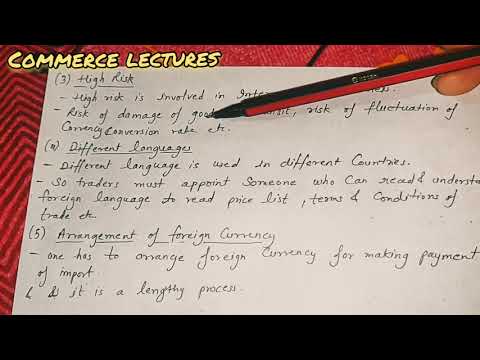 COMMERCE LECTURES
(3) High Risk
- High risk is involved in
- Risk of damage of risk of fluctuation of
Currency conversion rate etc.
Different languages
- Different language is used in different Countries.
- So traders must appoint Someone who Can read & understa
foreign language to read price list, terms & Conditions of
trade etc
(5) Arrangement of foreign Currency
- one has to arrange foreign Currency for making payment
of import.
it is a lengthy process.